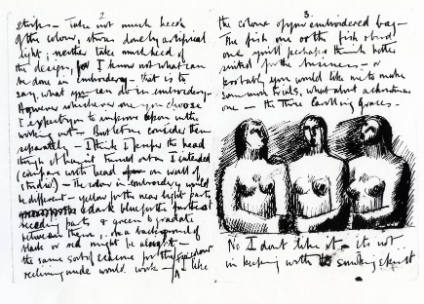 2
strips – Take not much heed
of the colour, it was done by artificial
light, neither take much heed of
the design, for I know not what can
be done in embroidery – that is to
say, what you can do in embroidery.
However whichever one you choose
I expect you to improve upon in the
working out – But let me consider them
separately – I think I prefer the head
though it hasn't turned out as I intended
(compare with head on wall of
studio) – the colour in embroidery would
be different – yellow for the near light parts
dark blue for the furthest
receding parts & green to graduate
between them, on a background of
black or red might be alright –
the same sort of scheme for the
reclining nude would work – I like
3.
the colour of your embroidered bag –
The fish one or the fish & bird
one you'll perhaps think better
suited for the business – or
probably you would like me to make
some more trials, what about a Christmas
one – the three Carolling Graces –
No I dont like it – its not
in keeping with smoking